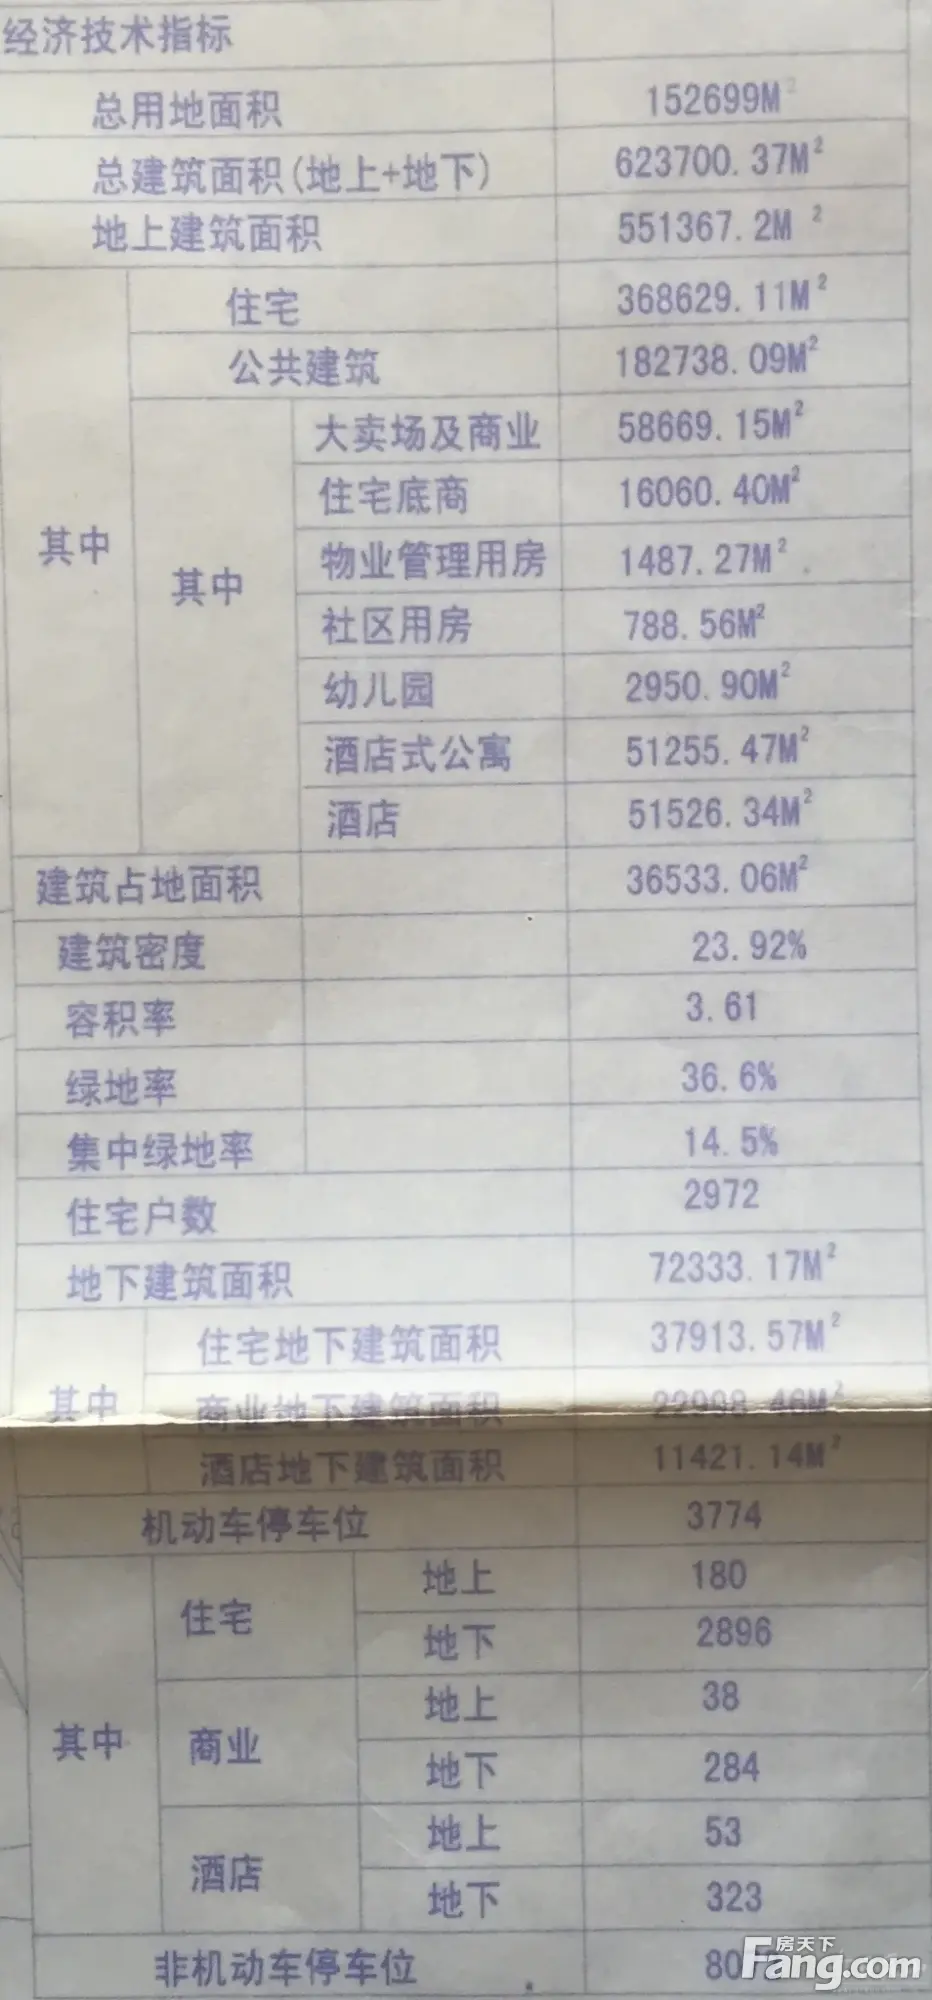 经济技术指标
总用地面积 152699M²
总建筑面积(地上+地下) 623700.37M²
地上建筑面积 551367.2M²
住宅 368629.11M²
公共建筑 182738.09M²
大卖场及商业 58669.15M²
住宅底商 16060.40M²
其中 其中 物业管理用房 1487.27M²
社区用房 788.56M²
幼儿园 2950.90M²
酒店式公寓 51255.47M²
酒店 51526.34M²
建筑占地面积 36533.06M²
建筑密度 23.92%
容积率 3.61
绿地率 36.6%
集中绿地率 14.5%
住宅户数 2972
地下建筑面积 72333.17M²
住宅地下建筑面积 37913.57M²
其中 商业地下建筑面积 22998.46M²
酒店地下建筑面积 11421.14M²
机动车停车位 3774
住宅 地上 180
地下 2896
其中 商业 地上 38
地下 284
酒店 地上 53
地下 323
非机动车停车位
房天下
Fang.com